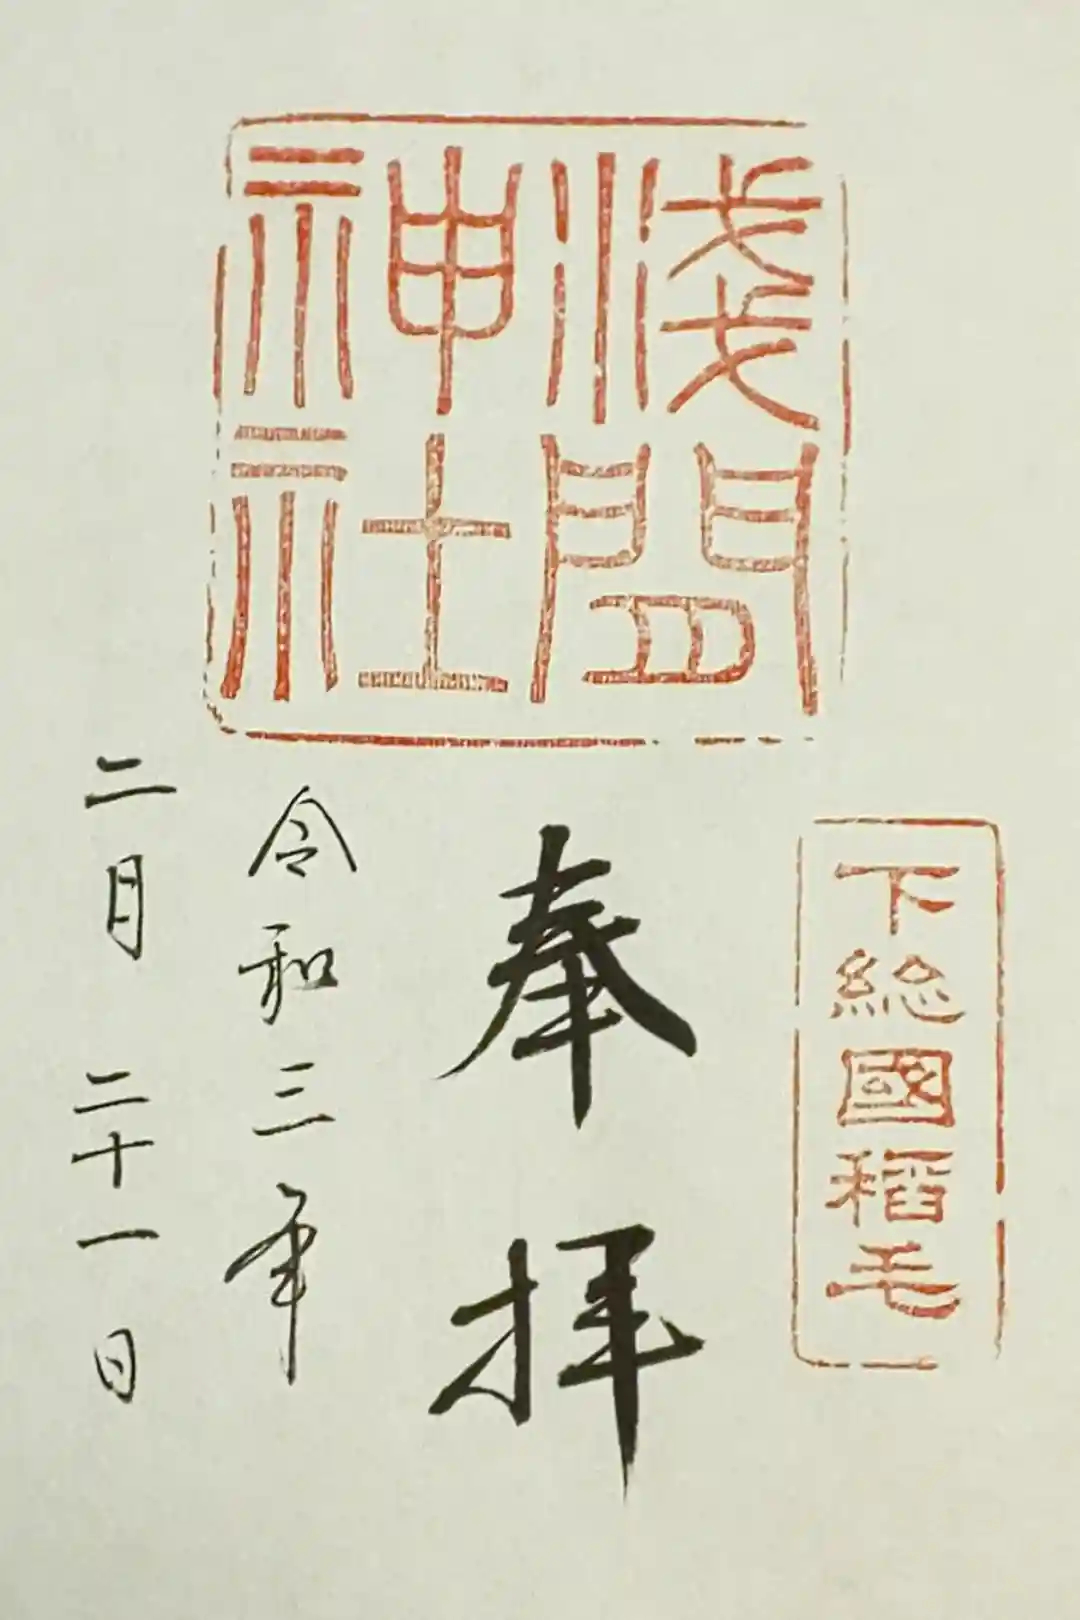 淺間
神社
下総國稻毛
奉拝
令和三年
二月二十一日